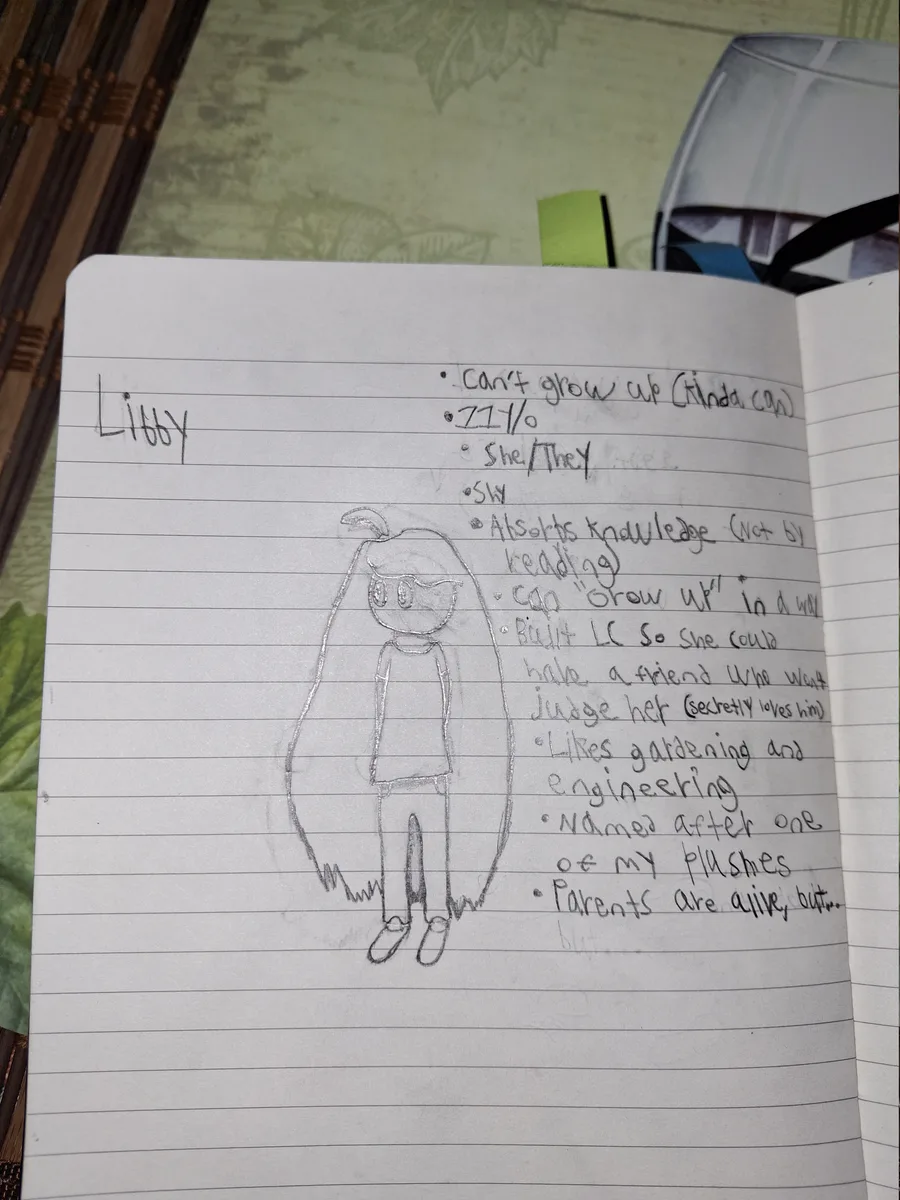 Libby
• Can't grow up (Kinda can)
• 11 Y/o
• She/They
• Shy
• Absorbs knowledge (Not by
reading)
• Can "Grow up" in a way
• Built LC so she could
have a friend who won't
judge her (secretly loves him)
• Likes gardening and
engineering
• Named after one
of my plushes
• Parents are alive, but...
but....